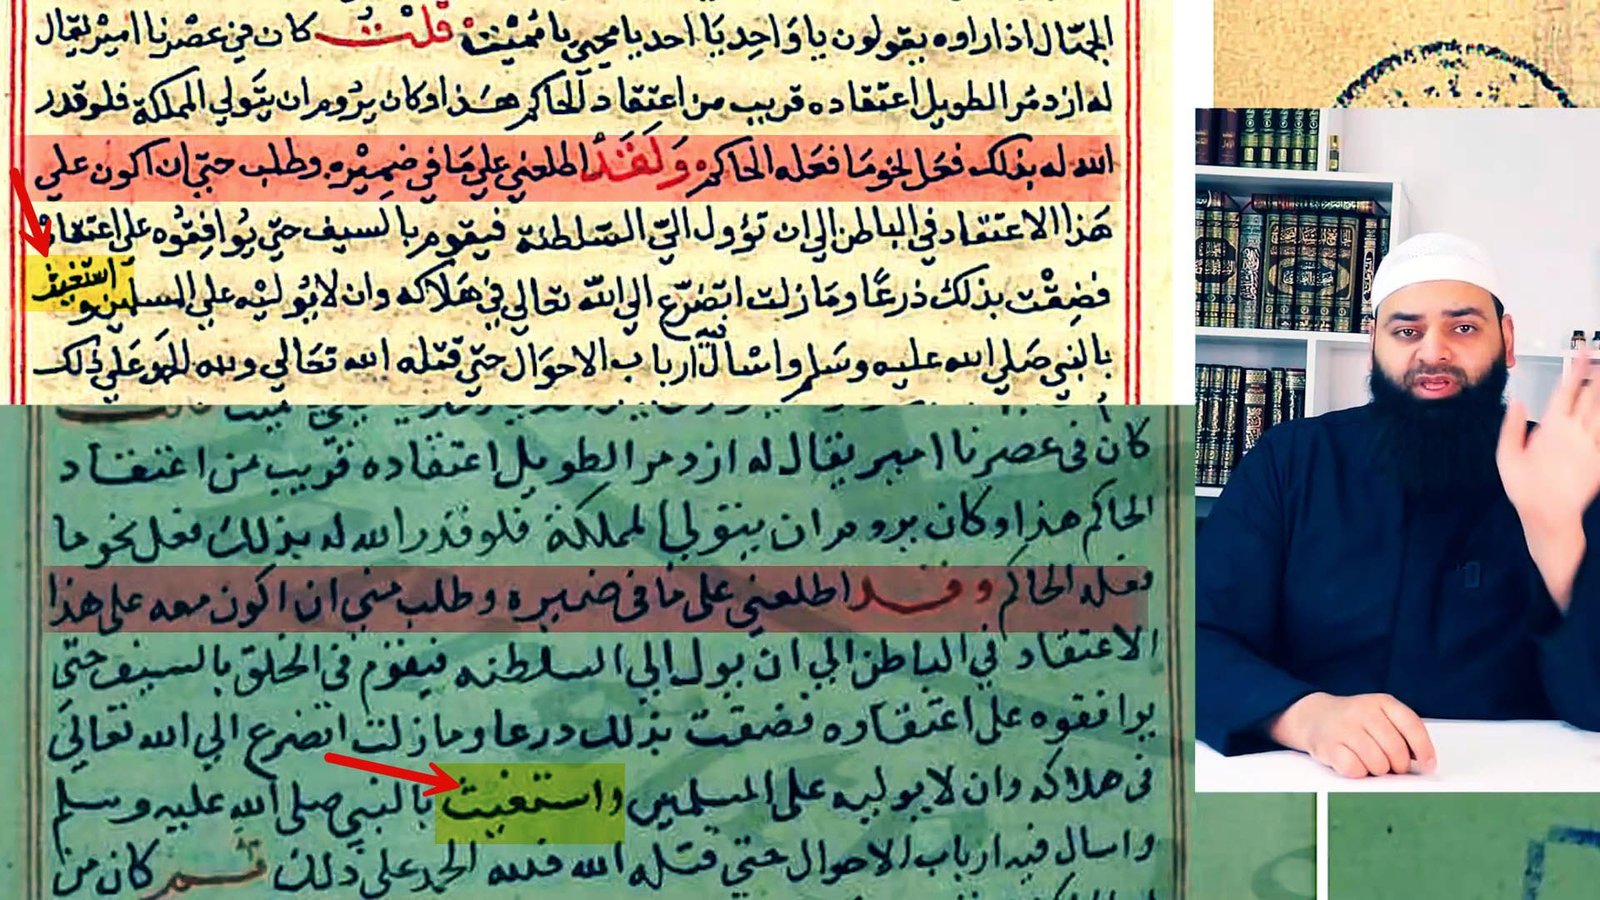 الجهال اذا راوه يقولون يا واحد يا احد يا محيي يا مميت قلت كان في عصرنا امير يقال
له ازدمر الطويل اعتقاده قريب من اعتقاد الحاكم هذا وكان يروم ان يتولي المملكة فلو قدر
الله له بذلك فعل نحو ما فعله الحاكم ولقد اطلعني علي ما في ضميره وطلب حتي ان اكون علي
هذا الاعتقاد في الباطن الي ان تؤول الي السلطنة فيقوم بالسيف حتي يوافقوه علي اعتقاده
فضقت بذلك ذرعا وما زلت اتضرع الي الله تعالي في هلاكه وان لا يوليه علي المسلمين واستغيث
بالنبي صلي الله عليه وسلم واسال فيه ارباب الاحوال حتي قتله الله تعالي ولله الحمد علي ذلك
كان في عصرنا امير يقال له ازدمر الطويل اعتقاده قريب من اعتقاد
الحاكم هذا وكان يروم ان يتولي المملكة فلو قدر الله له بذلك فعل نحو ما
فعله الحاكم وقد اطلعني علي ما في ضميره وطلب مني ان اكون معه علي هذا
الاعتقاد في الباطن الي ان يول الي السلطنه فيقوم في الخلق بالسيف حتي
يوافقوه علي اعتقاده فضقت بذلك درعا وما زلت اتضرع الي الله تعالي
في هلاكه وان لا يوليه علي المسلمين واستغيث بالنبي صلي الله عليه وسلم
واسال فيه ارباب الاحوال حتي قتله الله فلله الحمد علي ذلك كان من